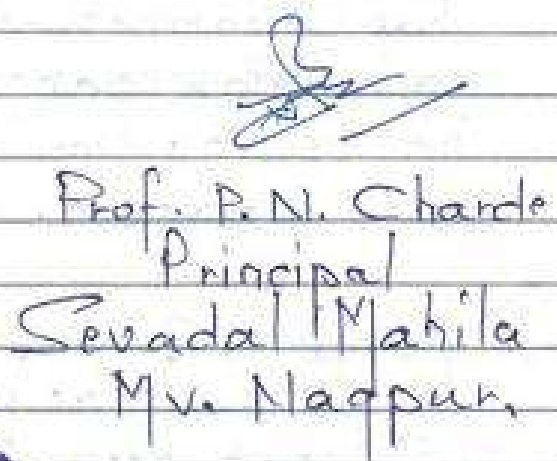 Prof. P. N. Charde
Principal
Sevadal Mahila
Mv. Nagpur.